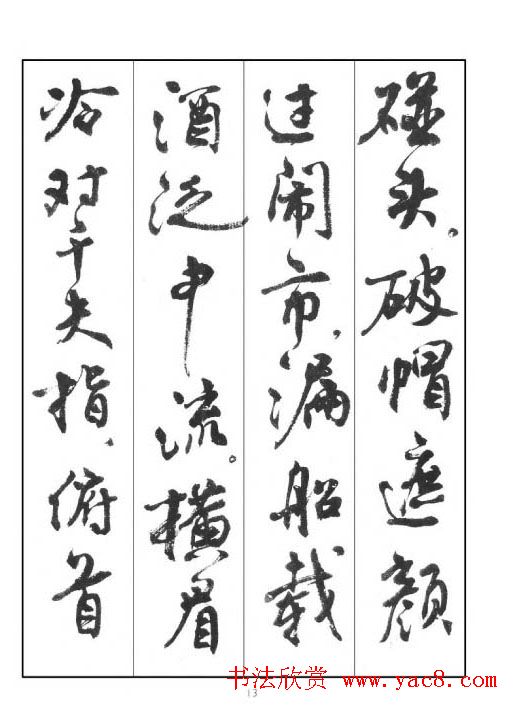 碰头。破帽遮颜
过闹市，漏船载
酒泛中流。横眉
冷对千夫指，俯首
书法欣赏 www.yac8.com
13